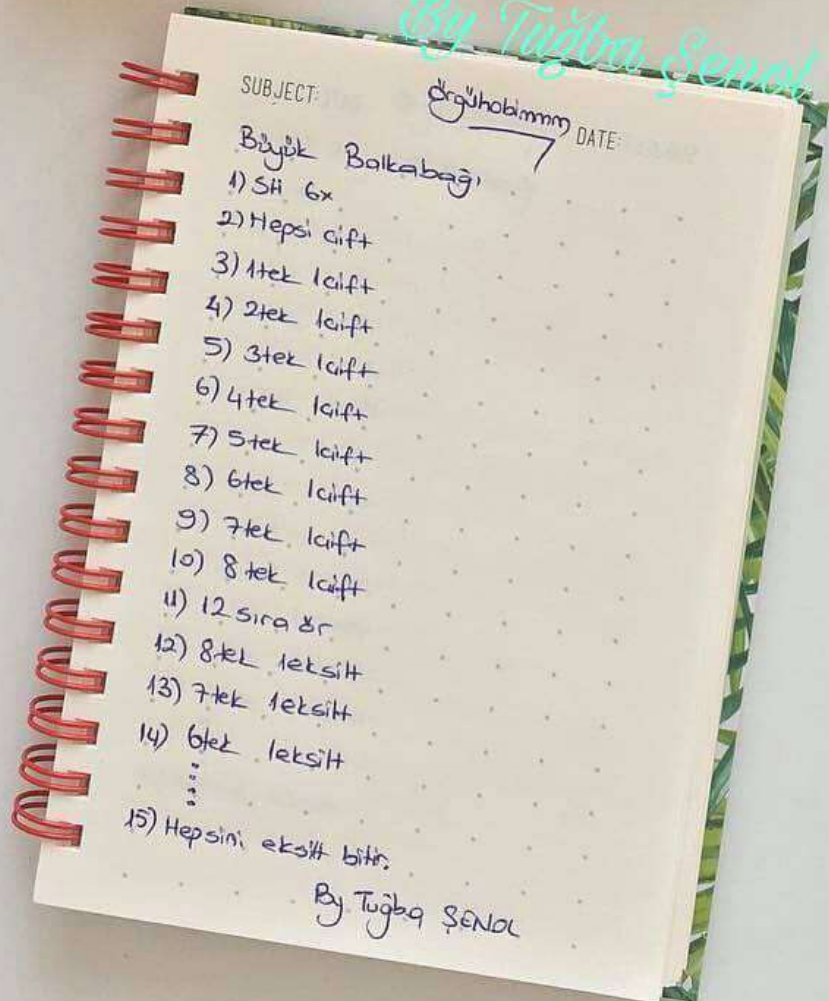 By Tuğba Şenol
SUBJECT:
örgühobimmm
DATE:
Büyük Balkabağı
1) SH 6x
2) Hepsi çift
3) 1tek 1çift
4) 2tek 1çift
5) 3tek 1çift
6) 4tek 1çift
7) 5tek 1çift
8) 6tek 1çift
9) 7tek 1çift
10) 8tek 1çift
11) 12 sıra ör
12) 8tek 1eksilt
13) 7tek 1eksilt
14) 6tek 1eksilt
15) Hepsini eksilt bitir.
By Tuğba ŞENOL